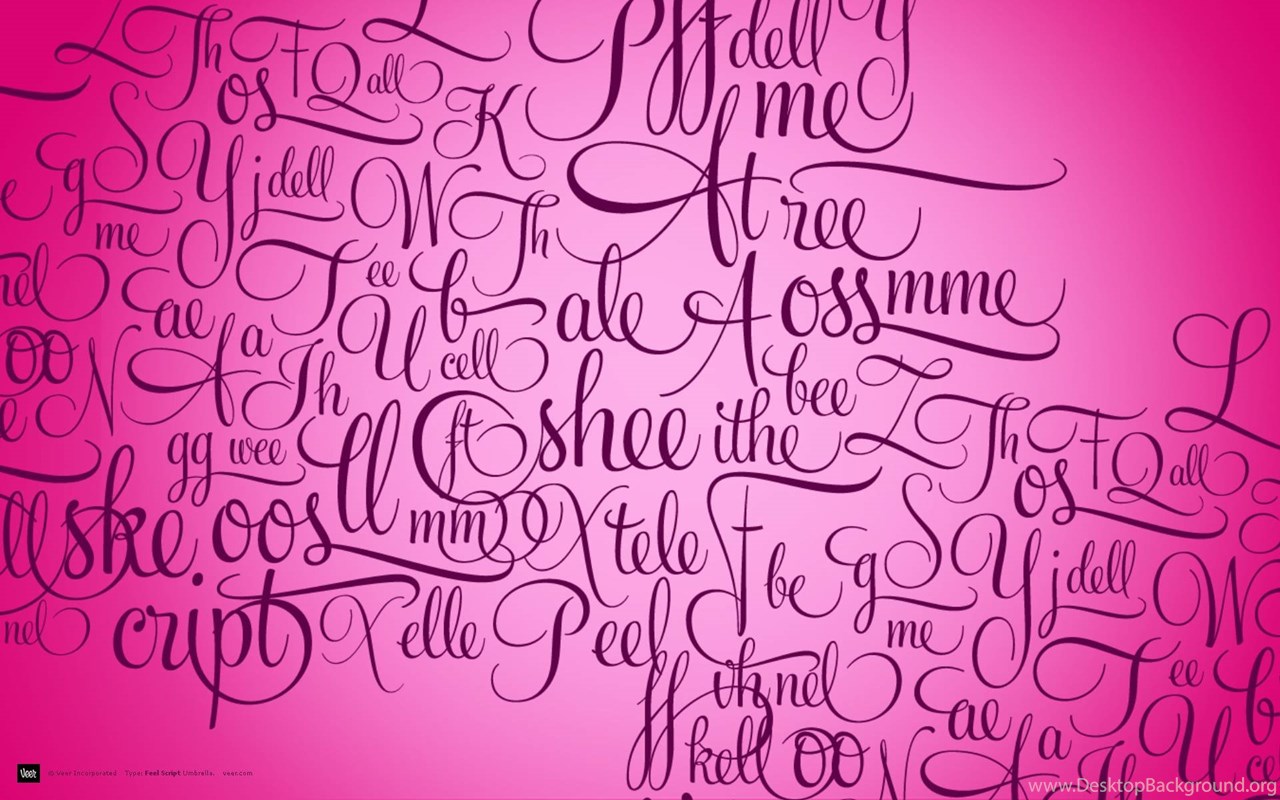 L Th F Q all L Pff dell y
os K me
g S Y j dell W Th At ree
me T ee b ale A oss mme
nel ae a U cell L
oo N A Th ft shee ithe bee Z Th F Q all
gg wee ll os
ll ske oos mm X tele F be g S Y j dell W
nel cript X elle Peel me T ee b
ff th nel ae a U ce
koll oo N A Th
Veer © Veer Incorporated Type: Feel Script Umbrella. veer.com
www.DesktopBackground.org